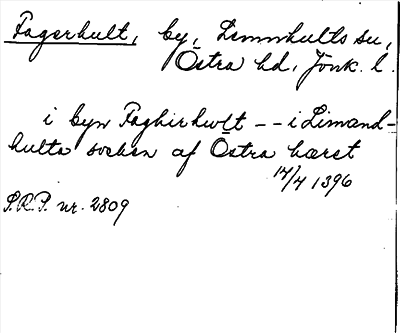 Fagerhult, by, Lemnhults sn,
Östra hd, Jönk. l.
i byn Faghirhult -- i Limand-
hulta sochen af Östra hæret
14/4 1396
S.R.P. nr. 2809